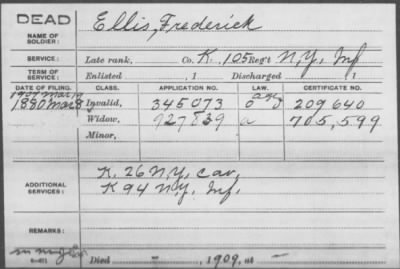 DEAD
NAME OF SOLDIER: Ellis, Frederick
SERVICE: Late rank, Co. K, 105 Reg't N.Y. Inf
TERM OF SERVICE: Enlisted , 1 Discharged , 1
DATE OF FILING. CLASS. APPLICATION NO. LAW. CERTIFICATE NO.
1880 Mar 8 Invalid, 345073 209640
Widow, 927839 a 705,599
Minor,
ADDITIONAL SERVICES: K. 26 N.Y. Cav.
K 94 N.Y. Inf.
REMARKS:
Died – , 1909, at –